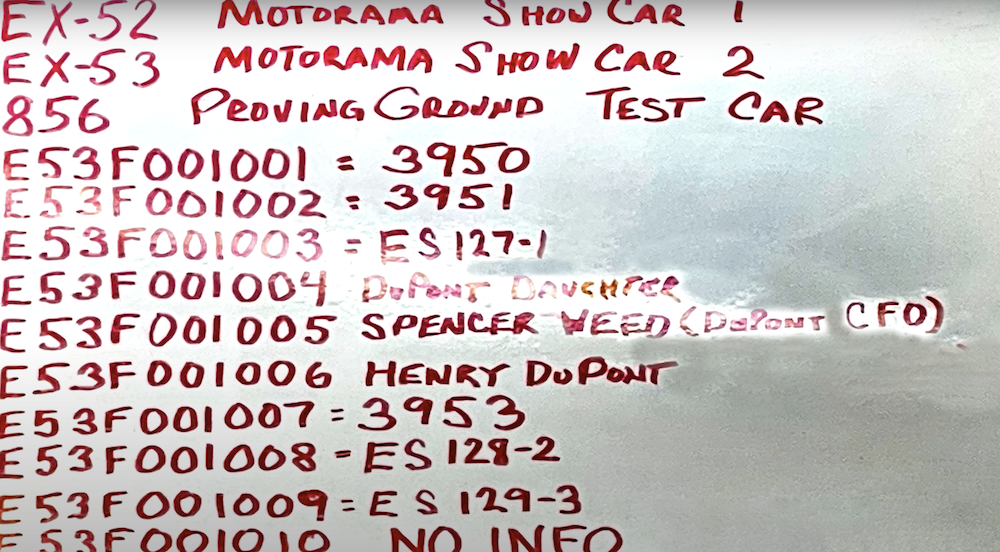 EX-52 MOTORAMA SHOW CAR 1
EX-53 MOTORAMA SHOW CAR 2
856 PROVING GROUND TEST CAR
E53F001001 = 3950
E53F001002 = 3951
E53F001003 = ES 127-1
E53F001004 DUPONT DAUGHTER
E53F001005 SPENCER WEED (DUPONT CFO)
E53F001006 HENRY DUPONT
E53F001007 = 3953
E53F001008 - ES 128-2
E53F001009 = ES 129-3
E53F001010 NO INFO